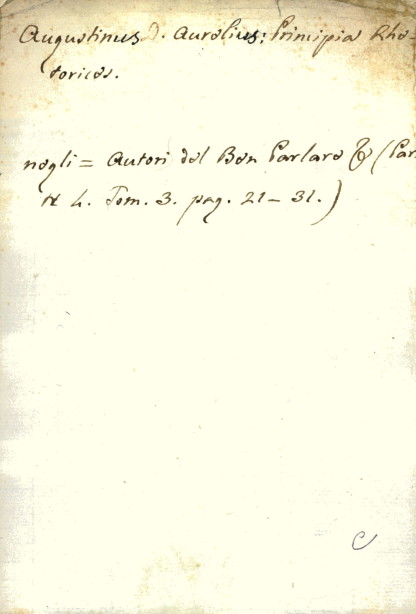 Augustinus D. Aurelius: Principia Rho-
torices.
negli = Autori del Ben Parlare & (Par
te 4. Tom. 3. pag. 21–31.)
C